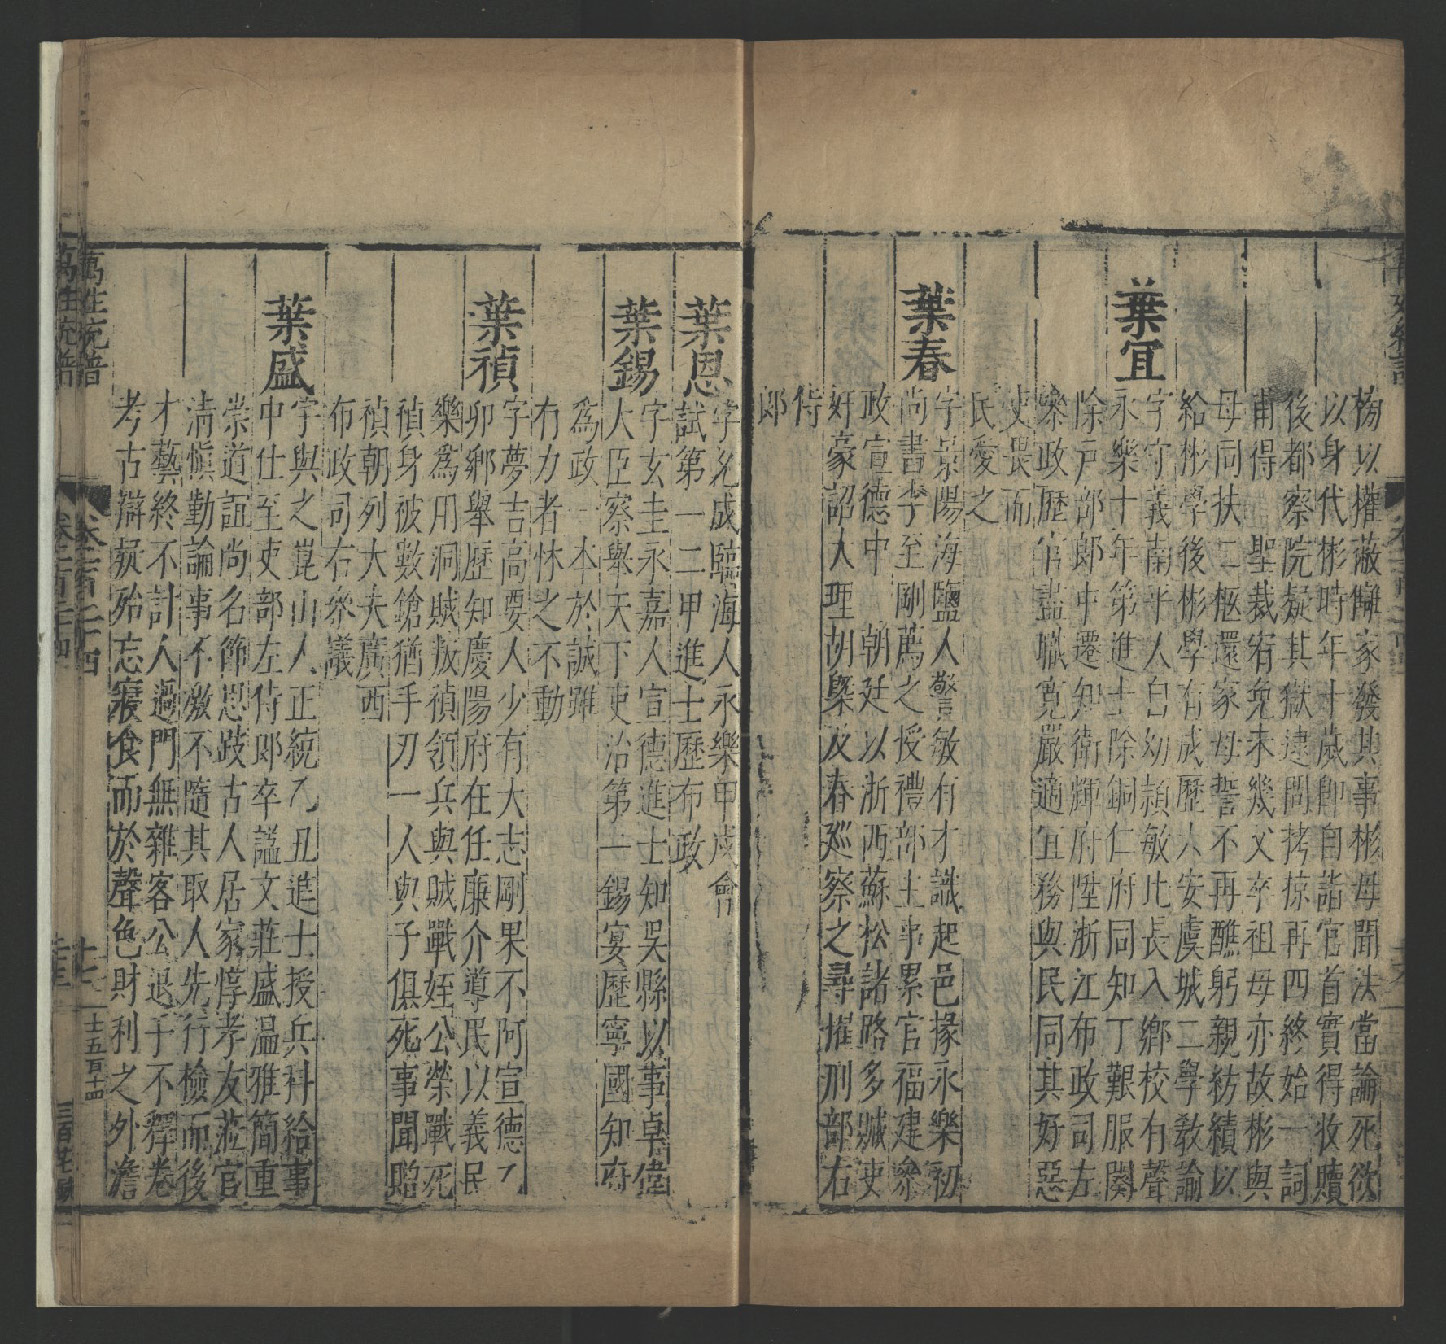 榜以權蔽辭家發其事彬母聞法當論死欲
以身代彬時年十歲卽自詣官首實得收贖
後都察院擬其獄逮問拷掠再四終始一詞
甫得 聖裁宥免未幾父卒祖母亦故彬與
母同扶二柩還家母誓不再醮躬親紡績以
給彬學後彬學有成歷六安虞城二學教論
葉宜
字守義南平人自幼頴敏比長入鄉校有聲
永樂十年第進士除銅仁府同知丁艱服闋
除戶部郎中遷知衛輝府陞浙江布政司左
叅政歷官盡職寬嚴適宜務與民同其好惡
吏畏而
民愛之
葉春
字景陽海鹽人警敏有才識起邑掾永樂初
尚書李至剛薦之授禮部主事累官福建叅
政宣德中 朝廷以浙西蘇松諸路多贓吏
奸豪詔大理胡槩及春廵察之尋擢刑部右
侍
郎
葉恩
字允成臨海人永樂甲戌會
試第一二甲進士歷布政
葉錫
字玄圭永嘉人宣德進士知吳縣以事卓偉
大臣察舉天下吏治第一錫宴歷寧國知府
為政一本於誠雖
有力者怵之不動
葉禎
字夢吉高要人少有大志剛果不阿宣德乙
卯鄉舉歷知慶陽府在任廉介導民以義民
樂為用洞賊叛禎領兵與賊戰姪公榮戰死
禎身被數鎗猶手刃一人與子俱死事聞贈
禎朝列大夫廣西
布政司右叅議
葉盛
字與之崑山人正統乙丑進士授兵科給事
中仕至吏部左侍郎卒謚文莊盛溫雅簡重
崇道誼尚名節思跂古人居家惇孝友蒞官
清愼勤論事不激不隨其取人先行檢而後
才藝終不計人過門無雜客公退手不釋卷
考古辯疑殆忘寢食而於聲色財利之外澹
萬姓統譜
卷一百二十四
十七